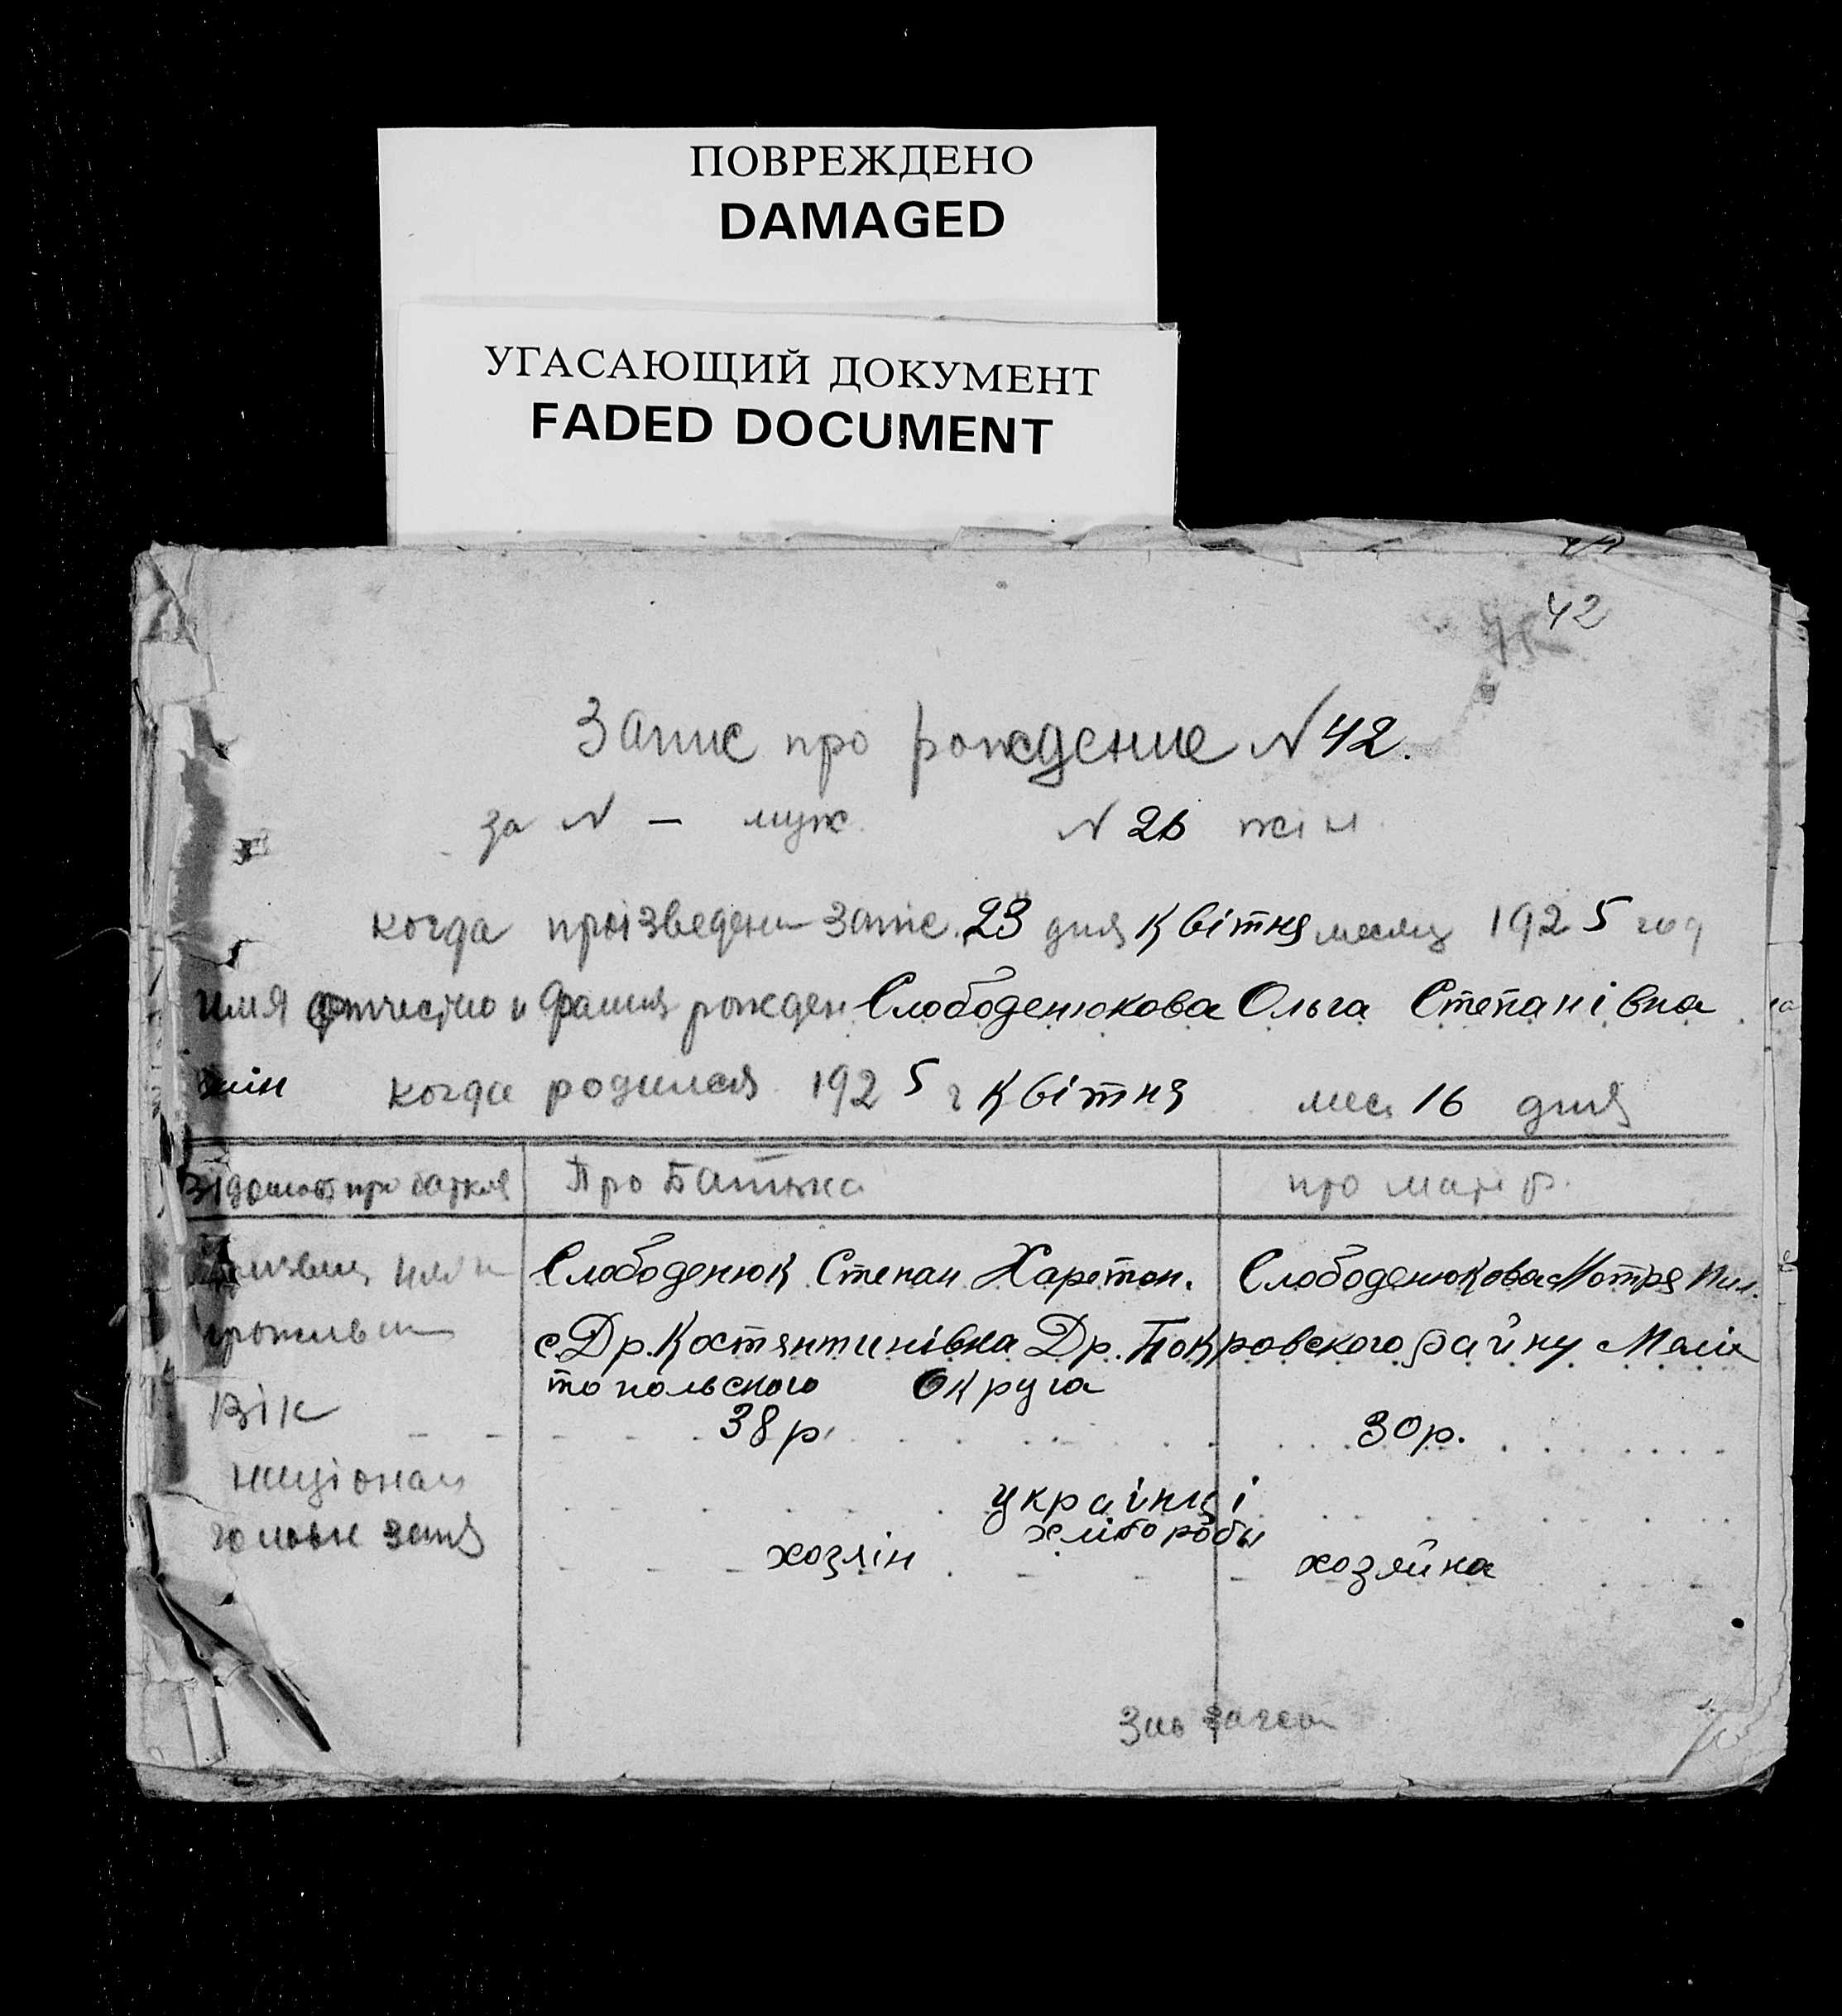 ПОВРЕЖДЕНО
DAMAGED
УГАСАЮЩИЙ ДОКУМЕНТ
FADED DOCUMENT
42
Запис про рождение N 42.
за N — муж. N 26 жін.
когда произведен запис. 23 дня Квітня месяц 1925 год
имя отчество и фамия рожден Слободенюкова Ольга Степанівна
жін когда родился 1925 г Квітня мес. 16 дня
Відомост про батков Про Батька про матер.
Слободенюк Степан Харетон. Слободенюкова Мотря Пил.
с Др. Костянтинівка Др. Покровского району Мелі
топольского Округа
Вік 38 р. 30 р.
націонал українці
хлібороби
головн занят хозяін хозяйка
Зав загсом